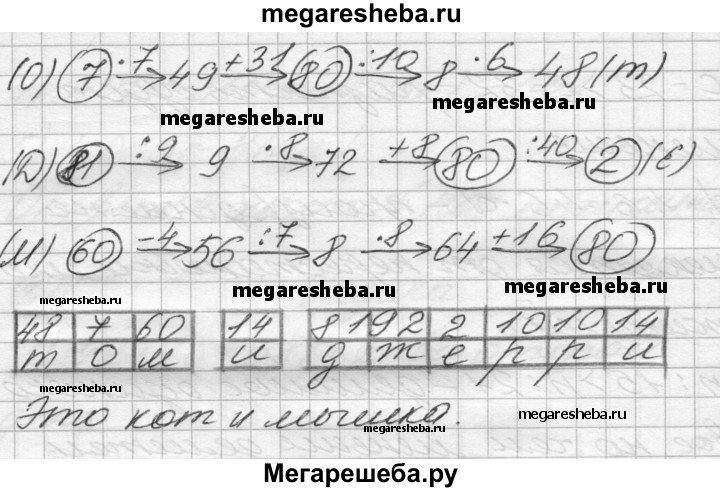 megaresheba.ru
(О) 7 ·7→ 49 +31→ 80 :10→ 8 ·6→ 48 (т)
megaresheba.ru megaresheba.ru
(Д) 81 :9→ 9 ·8→ 72 +8→ 80 :40→ 2 (е)
(М) 60 -4→ 56 :7→ 8 ·8→ 64 +16→ 80
megaresheba.ru megaresheba.ru megaresheba.ru
48 7 60 14 8 192 2 10 10 14
т о м и д ж е р р и
Это кот и мышка.
megaresheba.ru megaresheba.ru
Мегарешеба.ру